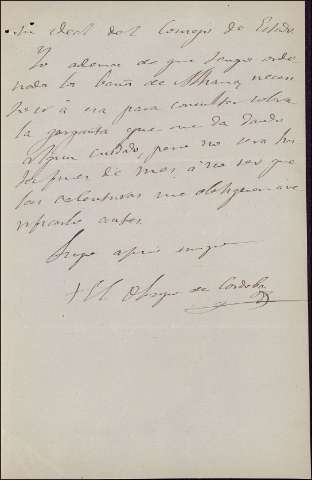 del Consejo de Estado
Yo ademas de que tengo orde
nado los baños de Alhama, necesi
to ir á esa para consultar sobre
la garganta que me da dando
algun cuidado, pero no sera has
ta fines de mes, á no ser que
las calenturas me obliguen a ve
rificarlo antes.
Suyo afmo amigo
+ El Obispo de Cordoba